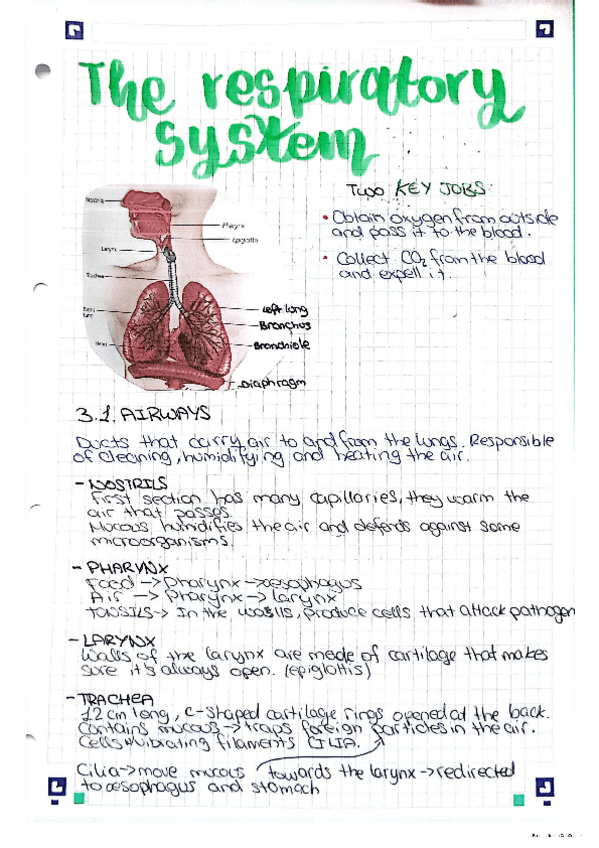 The respiratory
system
Two KEY JOBS:
• Obtain oxygen from outside
and pass it to the blood.
• Collect CO2 from the blood
and expell it.
Nostrils
Pharynx
Epiglottis
Larynx
Trachea
Left lung
Bronchus
Bronchiole
Diaphragm
3.1. AIRWAYS
Ducts that carry air to and from the lungs. Responsible
of cleaning, humidifying and heating the air.
- NOSTRILS
First section has many capillaries, they warm the
air that passes.
Mucous humidifies the air and defends against some
microorganisms.
- PHARYNX
Food -> Pharynx -> oesophagus
Air -> Pharynx -> larynx
TONSILS -> In the walls, produce cells that attack pathogen
- LARYNX
Walls of the larynx are made of cartilage that makes
sure it's always open. (epiglottis)
- TRACHEA
12 cm long, C-shaped cartilage rings opened at the back.
Contains mucous -> traps foreign particles in the air.
Cells vibrating filaments CILIA.
Cilia -> move mucous towards the larynx -> redirected
to oesophagus and stomach